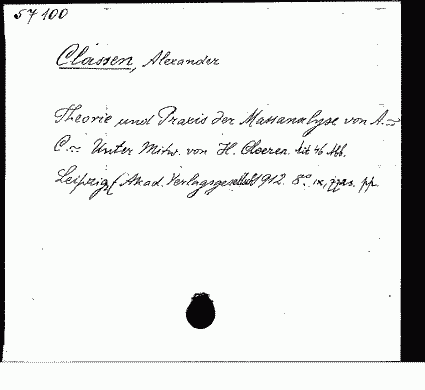 57 100
Classen, Alexander
Theorie und Praxis der Massanalyse von A.=
C.= Unter Mitw. von H. Cloeren. Mit 46 Abb.
Leipzig, Akad. Verlagsgesellsch 1912. 8° ix, pp.